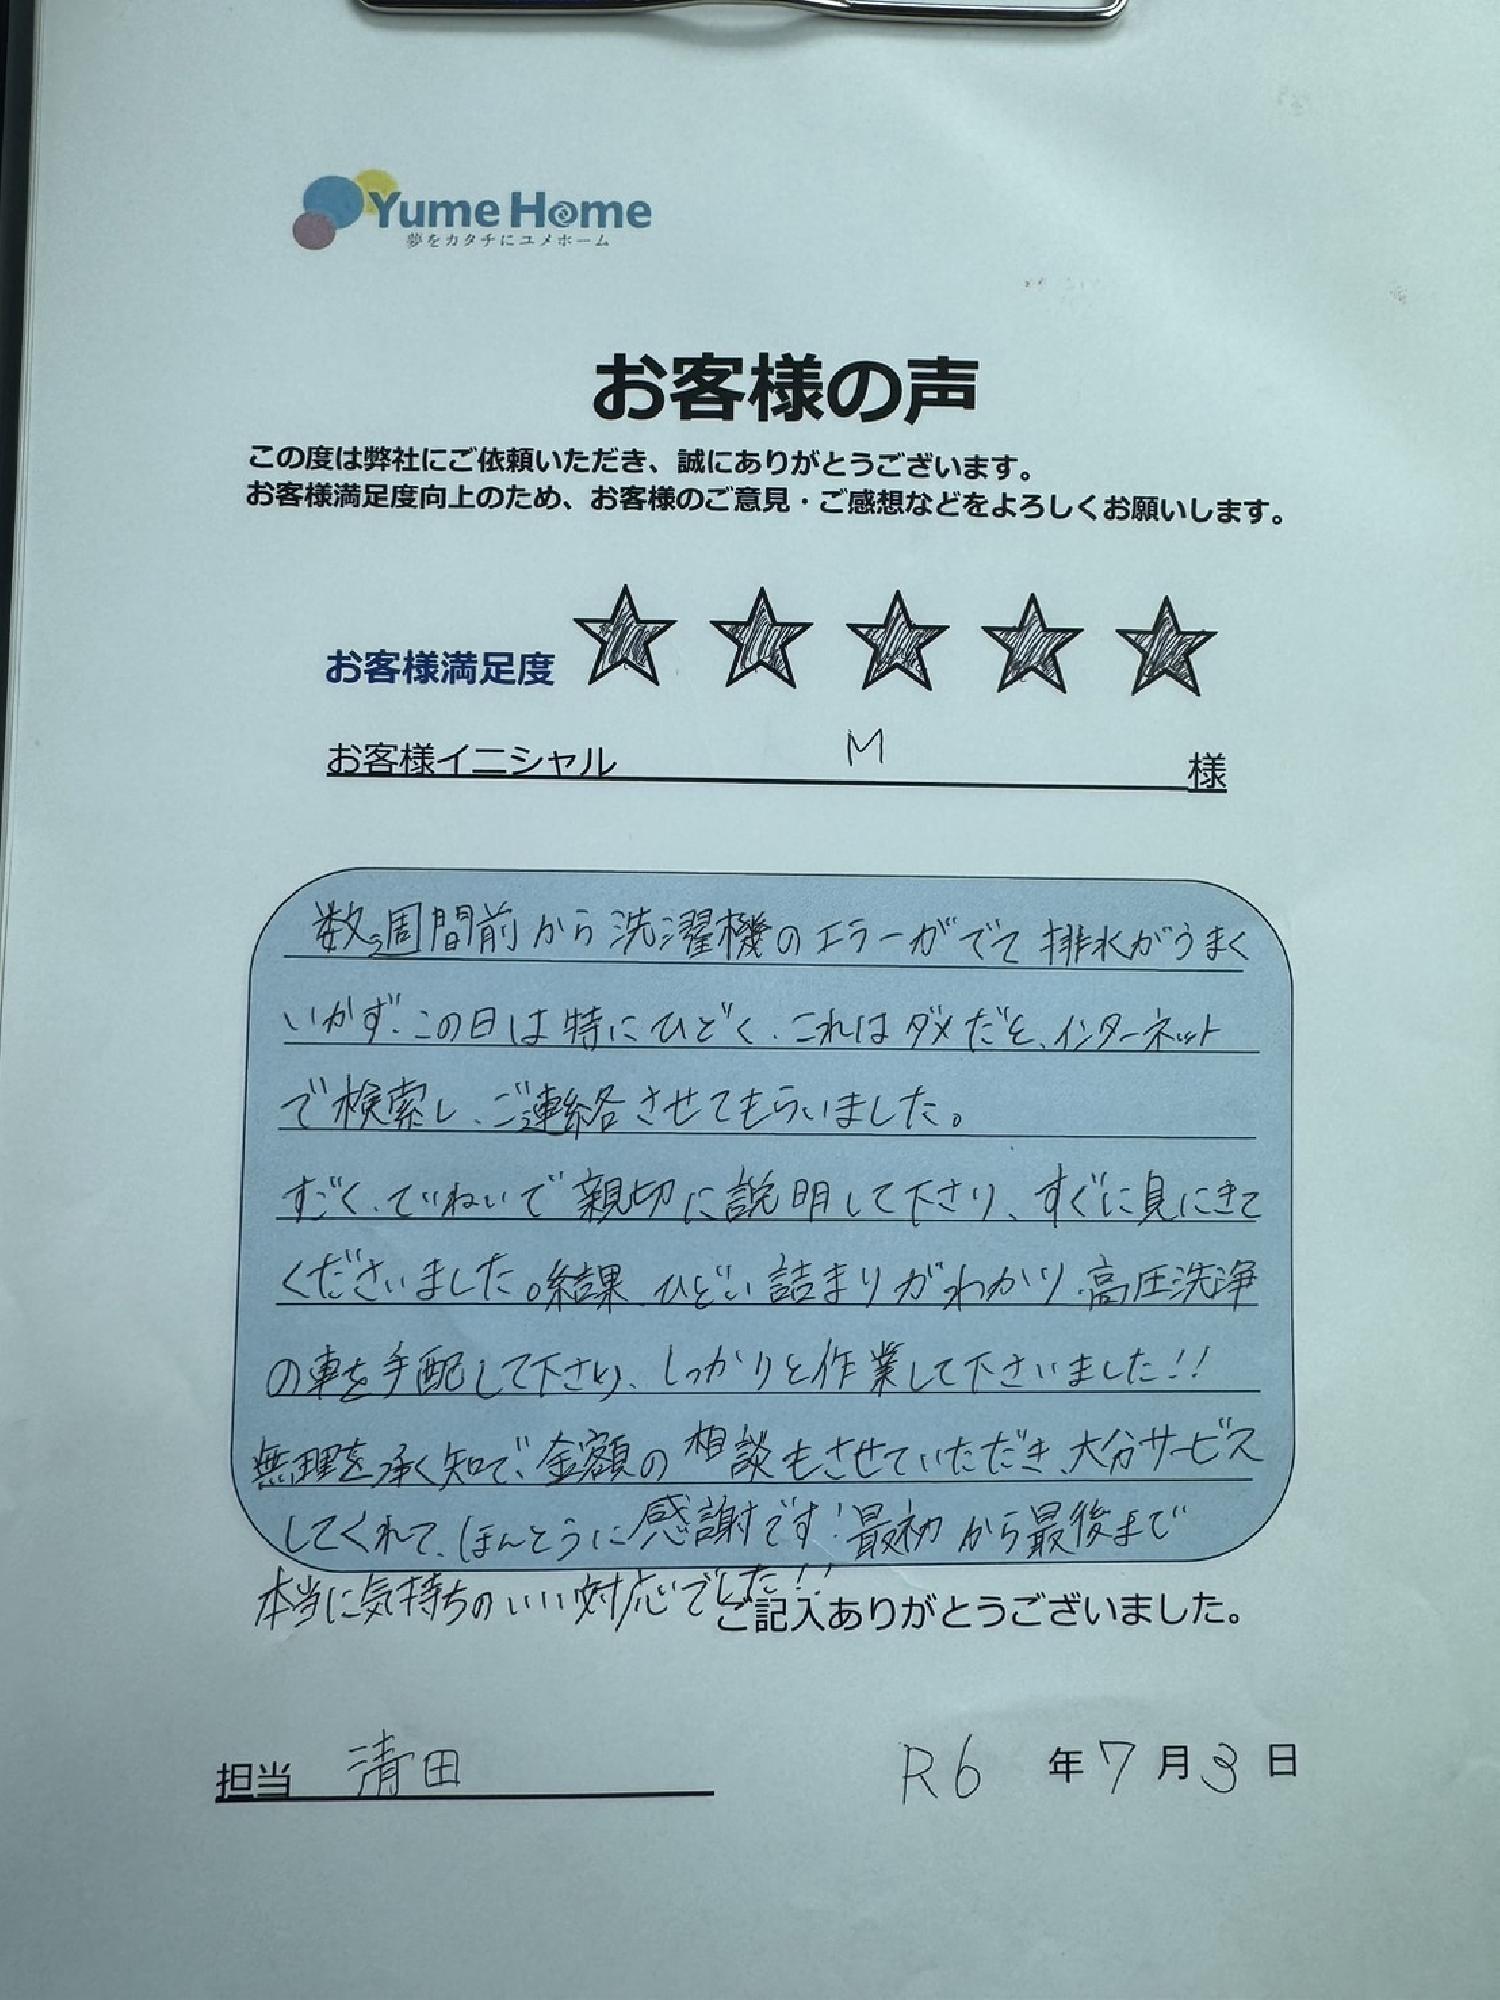 Yume Home
夢をカタチにユメホーム
お客様の声
この度は弊社にご依頼いただき、誠にありがとうございます。
お客様満足度向上のため、お客様のご意見・ご感想などをよろしくお願いします。
お客様満足度 ★★★★★
お客様イニシャル M 様
数週間前から洗濯機のエラーがでて排水がうまく
いかず、この日は特にひどく、これはダメだと、インターネット
で検索し、ご連絡させてもらいました。
すごく、ていねいで親切に説明して下さり、すぐに見にきて
くださいました。結果、ひどい詰まりがわかり、高圧洗浄
の車を手配して下さり、しっかりと作業して下さいました!!
無理を承く知で、金額の相談もさせていただき、大分サービス
してくれて、ほんとうに感謝です!最初から最後まで
本当に気持ちのいい対応でした!!
ご記入ありがとうございました。
担当 清田
R6 年 7 月 3 日